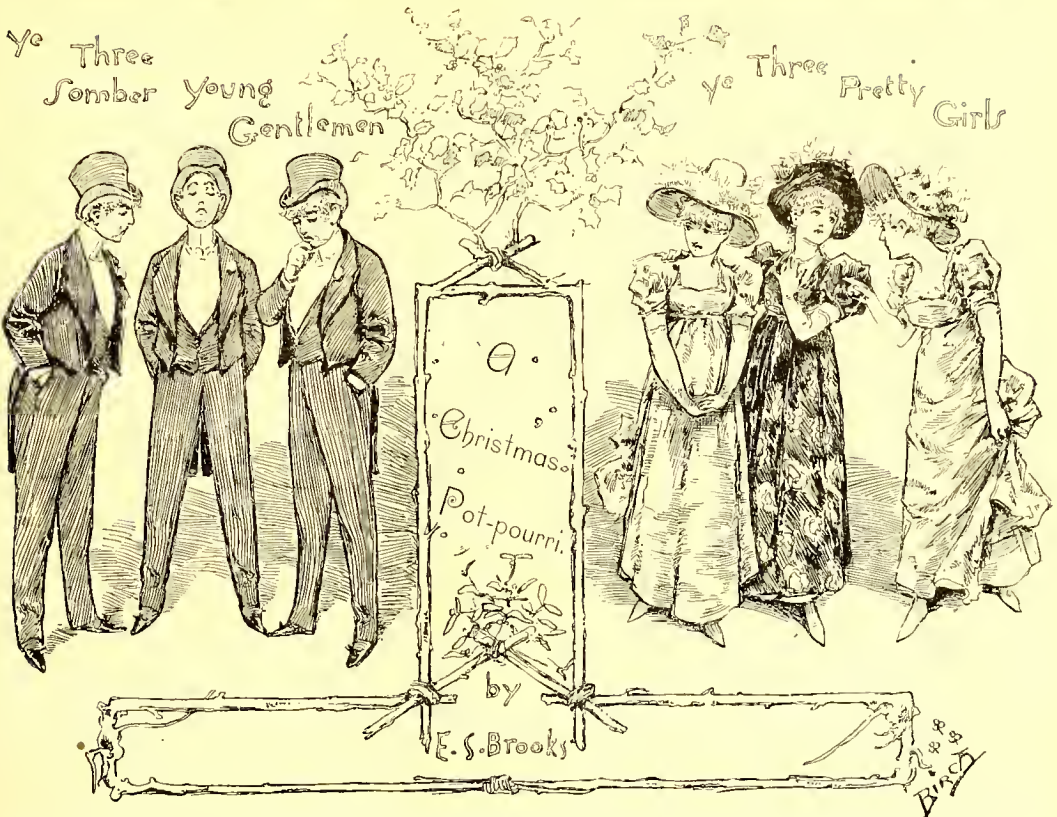 Ye Three
Somber Young
Gentlemen
Ye Three Pretty
Girls
A
Christmas
Pot-pourri.
by
E. S. Brooks
BIRCH